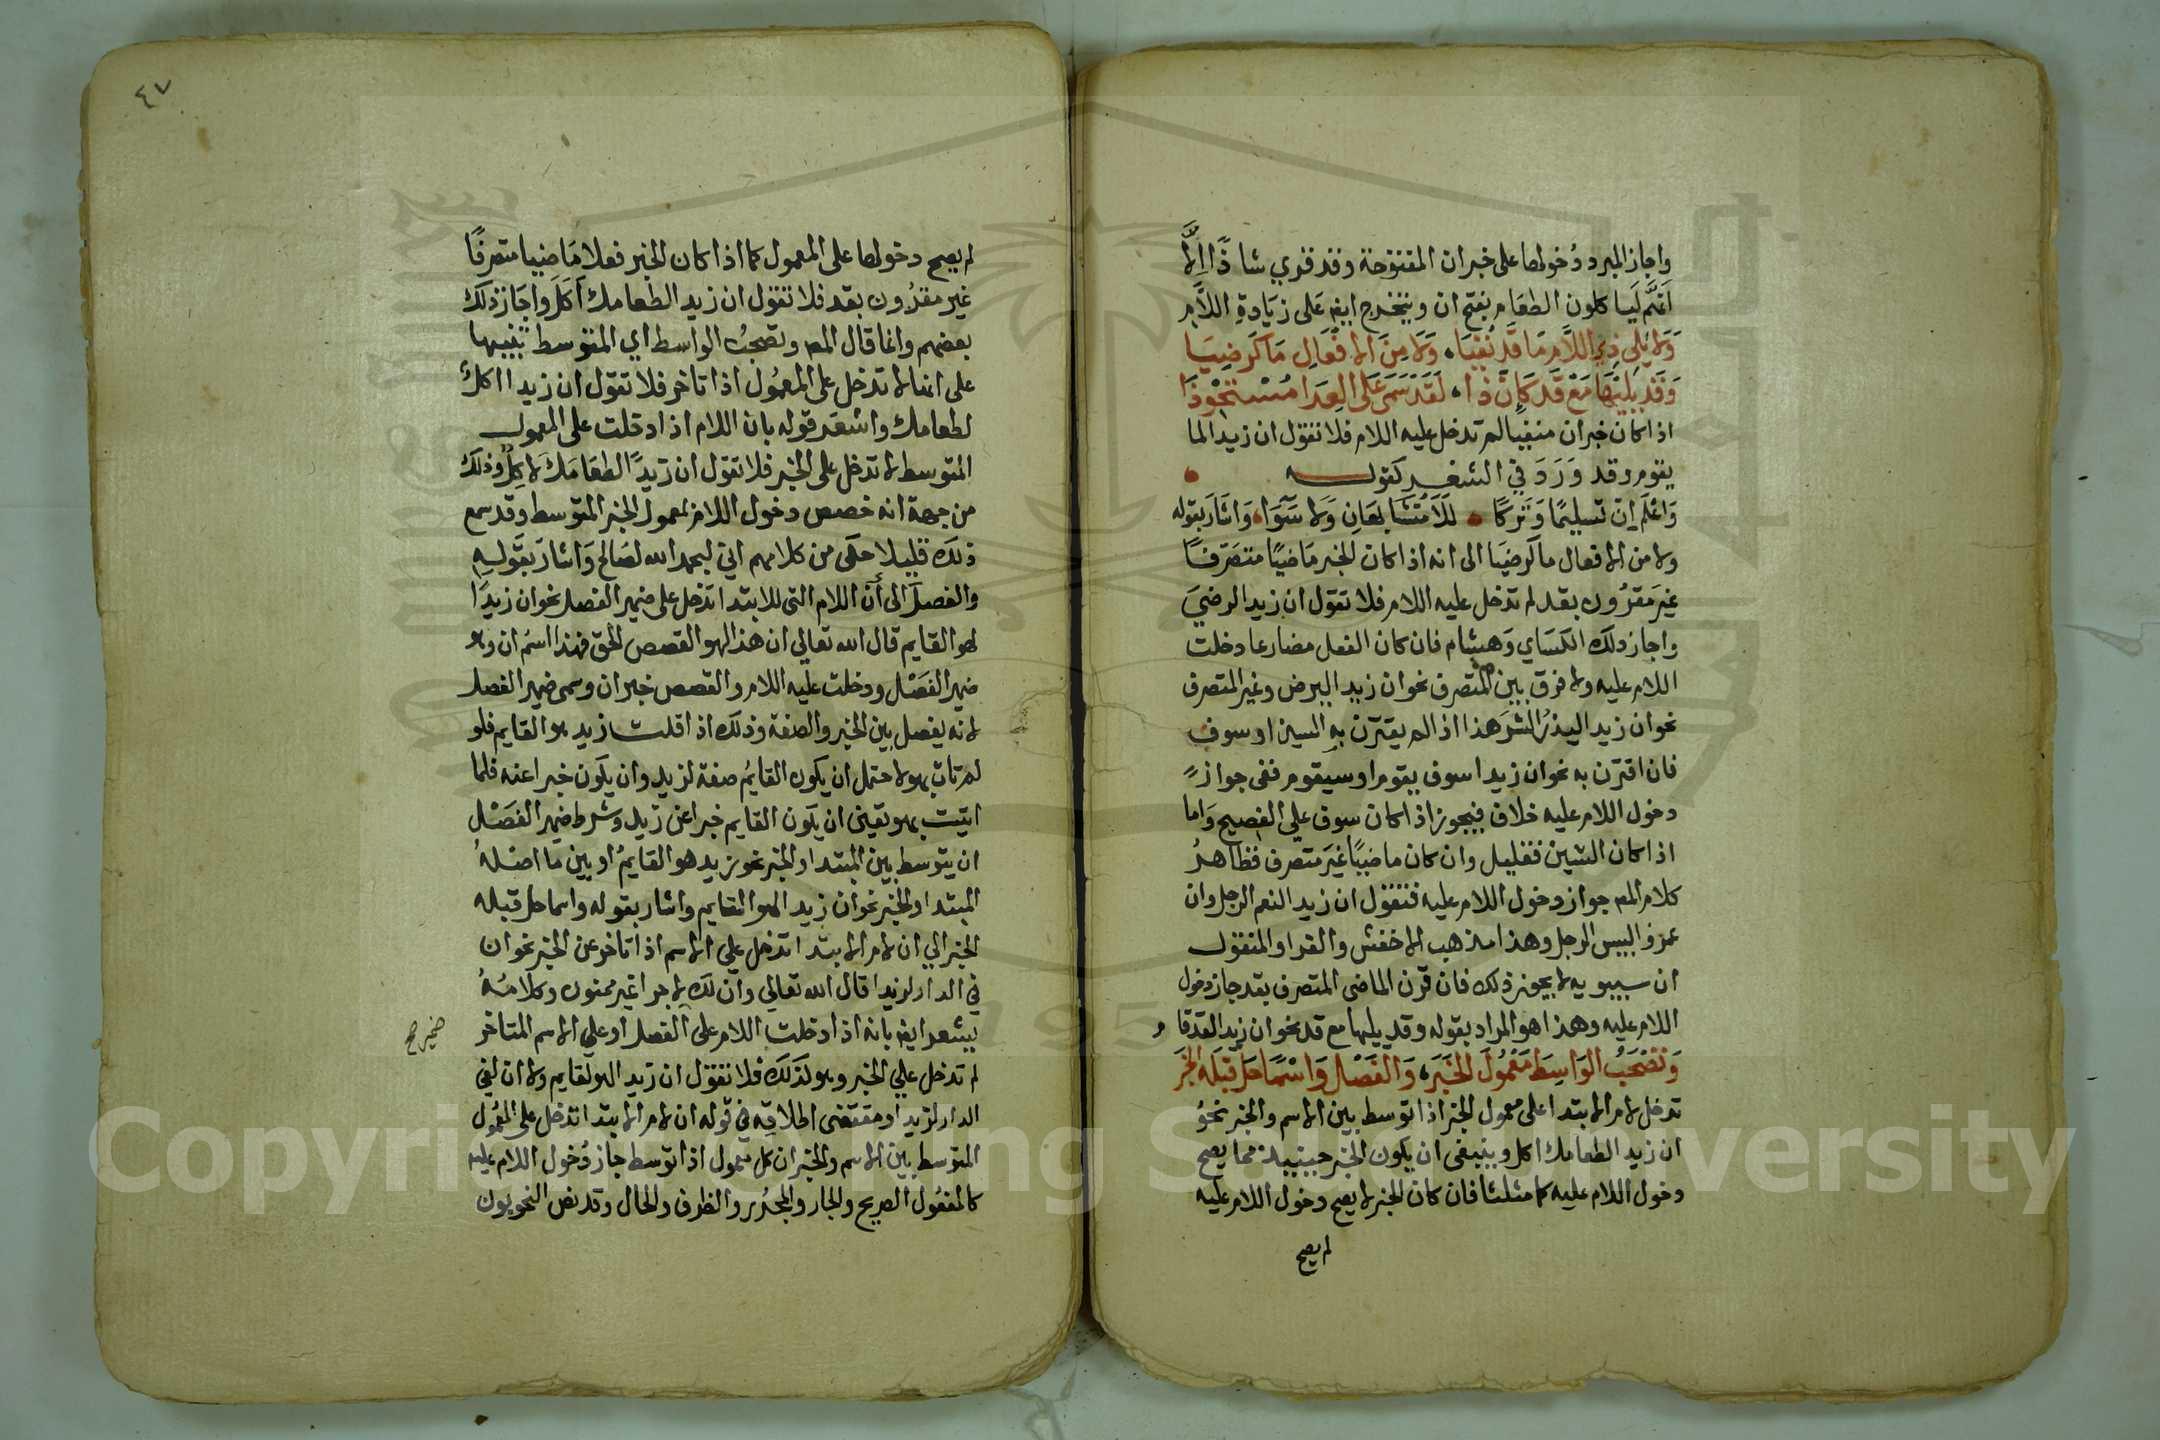 واجاز المبرد دخولها على خبر ان المفتوحة وقد قري شاذا الا
انهم لياكلون الطعام بفتح ان ويتخرج ايض على زيادة اللام
وَلا يَلي ذي اللام ما قد نُفيا، ولا من الافعال ما كرضيا
وقد يليها مع قد كان ذا، لقد سمى على العدا مستحوذا
اذا كان خبر ان منفيا لم تدخل عليه اللام فلا تقول ان زيدا لما
يقوم وقد ورد في الشعر كقوله
واعلم ان تسليما وتركا للا متشابهان ولا سوا، واشار بقوله
ولا من الافعال ما كرضيا الى انه اذا كان الخبر ماضيا متصرفا
غير مقرون بقد لم تدخل عليه اللام فلا تقول ان زيدا لرضي
واجاز ذلك الكساي وهشام فان كان الفعل مضارعا دخلت
اللام عليه ولا فرق بين المتصرف نحو ان زيدا ليرضى وغير المتصرف
نحو ان زيدا ليذر الشر هذا اذا لم يقترن به السين او سوف
فان اقترن به نحو ان زيدا سوف يقوم او سيقوم ففى جواز
دخول اللام عليه خلاف فيجوز اذا كان سوف على الصحيح واما
اذا كان السين فقليل وان كان ماضيا غير متصرف فظاهر
كلام المص جواز دخول اللام عليه فتقول ان زيدا لنعم الرجل وان
عمرو لبيس الرجل وهذا مذهب الاخفش والفرا والمنقول
ان سيبويه لا يجوز ذلك فان قرن الماضى المتصرف بقد جاز دخول
اللام عليه وهذا هو المراد بقوله وقد يليها مع قد نحو ان زيدا لقد قا م
وتصحب الواسط معمول الخبر، والفصل واسما حل قبله الخبر
تدخل لام الابتدا على معمول الخبر اذا توسط بين الاسم والخبر نحو
ان زيدا لطعامك اكل وينبغى ان يكون الخبر حينيذ مما يصح
دخول اللام عليه كما مثلنا فان كان الخبر لا يصح دخول اللام عليه
لم يصح
٤٧
لم يصح دخولها على المعمول كما اذا كان الخبر فعلا ماضيا متصرفا
غير مقرون بقد فلا تقول ان زيدا لطعامك اكل واجاز ذلك
بعضهم وانما قال المص وتصحب الواسط اي المتوسط تنبيها
على انها لا تدخل على المعمول اذا تاخر فلا تقول ان زيدا اكل
لطعامك واشعر قوله بان اللام اذا دخلت على المعمول
المتوسط لا تدخل على الخبر فلا تقول ان زيدا لطعامك لاكل وذلك
من جهة انه خصص دخول اللام لمعمول الخبر المتوسط وقد سمع
ذلك قليلا حكى من كلامهم اني لبحمد الله لصالح واشار بقوله
والفصل الى أن اللام التى للابتدا تدخل على ضمير الفصل نحو ان زيدا
لهو القايم قال الله تعالي ان هذا لهو القصص الحق فهذا اسم ان وهو
ضمير الفصل ودخلت عليه اللام والقصص خبر ان وسمى ضمير الفصل
لانه يفصل بين الخبر والصفة وذلك اذا قلت زيد هو القايم فلو
لم تات بهو لاحتمل ان يكون القايم صفة لزيد وان يكون خبرا عنه فلما
اتيت بهو تعين ان يكون القايم خبرا عن زيد وشرط ضمير الفصل
ان يتوسط بين المبتدا والخبر نحو زيد هو القايم او بين ما اصله
المبتدا والخبر نحو ان زيدا لهو القايم واشار بقوله واسما حل قبله
الخبر الي ان لام الابتدا تدخل علي الاسم اذا تاخر عن الخبر نحو ان
في الدار لزيدا قال الله تعالي وان لك لاجرا غير ممنون وكلامه
يشعر ايض بانه اذا دخلت اللام على الفصل او علي الاسم المتاخر
ضمير صح
لم تدخل علي الخبر وهو كذلك فلا تقول ان زيدا لهو لقايم ولا ان لفي
الدار لزيدا ومقتضى اطلاقه في قوله ان لام الابتدا تدخل على المعمول
المتوسط بين الاسم والخبر ان كل معمول اذا توسط جاز دخول اللام عليه
كالمفعول الصريح والجار والمجرور والظرف والحال وقد نص النحويون
Copyright © King Saud University
195